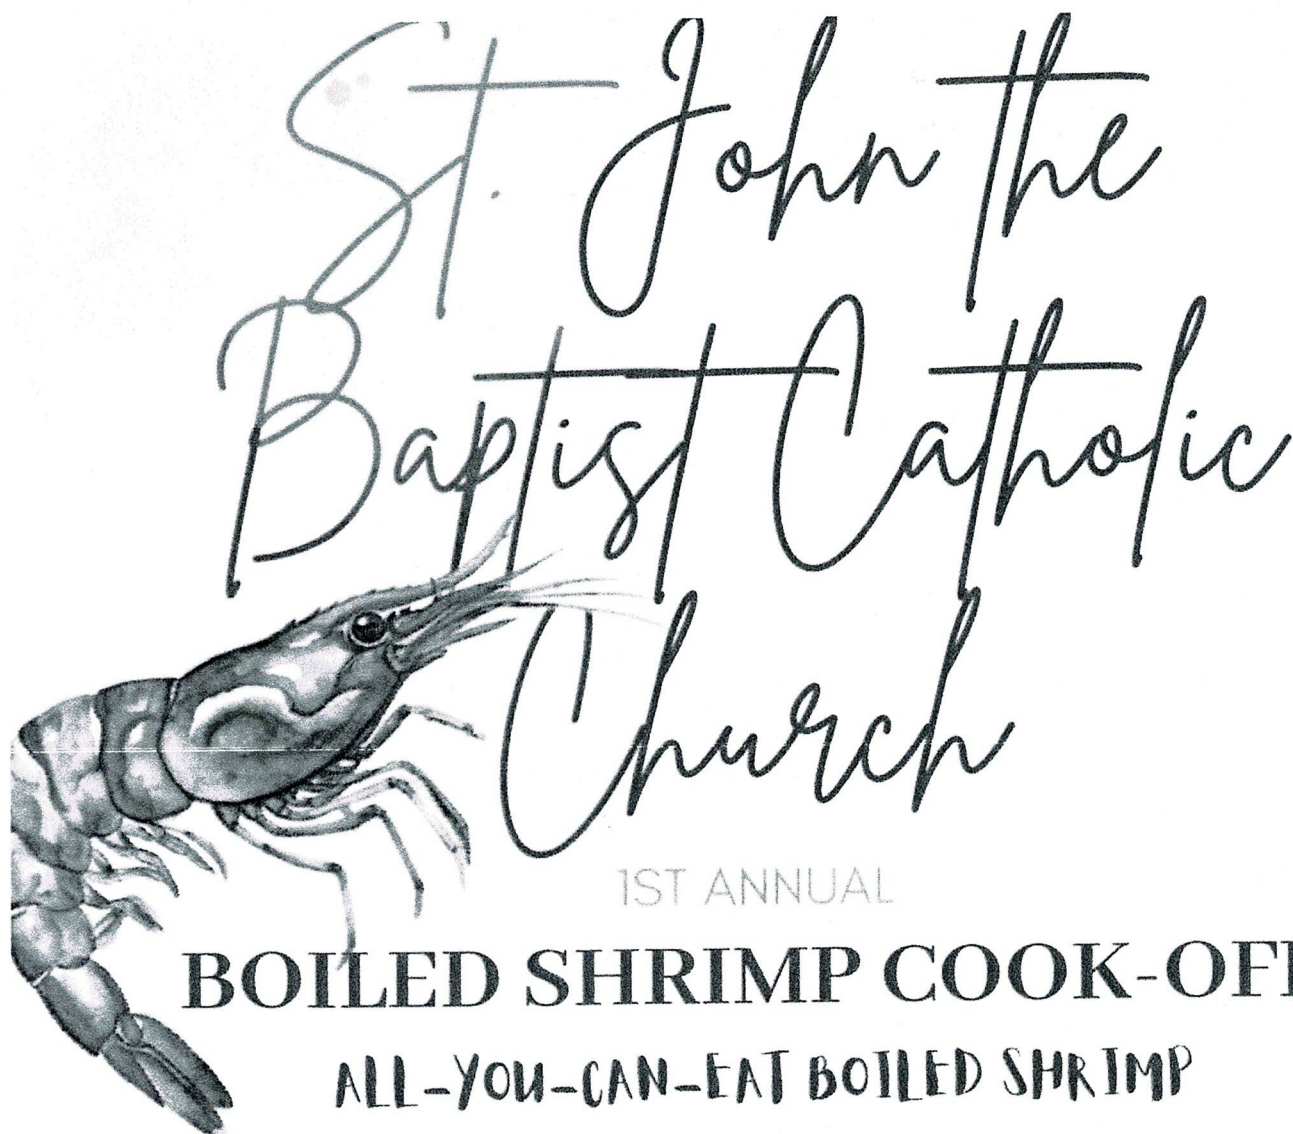 St. John the
Baptist Catholic
Church
1ST ANNUAL
BOILED SHRIMP COOK-OF
ALL-YOU-CAN-EAT BOILED SHRIMP